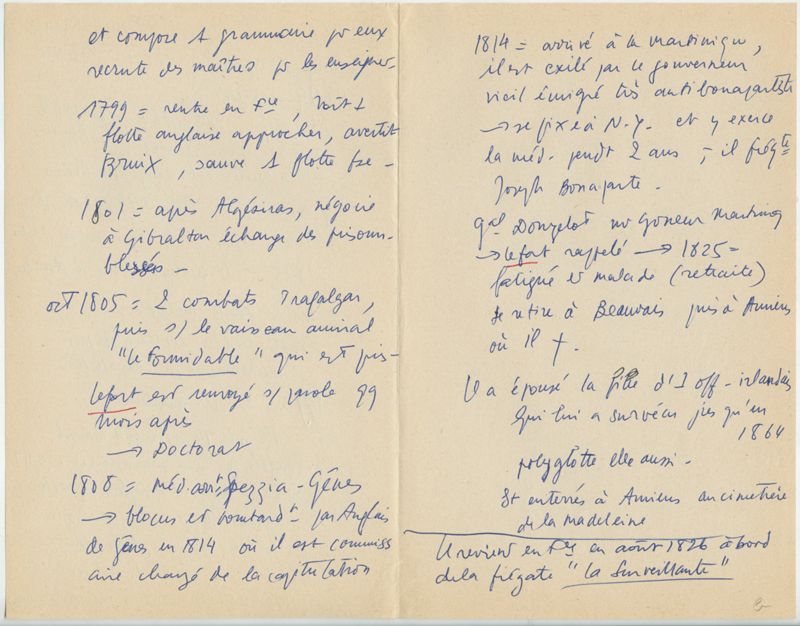 et compose 1 grammaire pr eux
recrute des maîtres pr les enseigner-
1799 = rentre en Fce, voit 1
flotte anglaise approcher, avertit
Bruix, sauve 1 flotte fse -
1801 = après Algésiras, négocie
à Gibraltar échange des prisonn-
blessés -
oct 1805 = 2 combats Trafalgar,
puis s/ le vaisseau amiral
"le formidable" qui est pris-
Lefort est renvoyé s/ parole qq
mois après
→ Doctorat
1808 = Méd. Spezzia - Gênes
→ blocus et bombardt par Anglais
de Gênes en 1814 où il est commiss
aire chargé de la capitulation
1814 = arrivé à la Martinique,
il est exilé par le gouverneur
vieil émigré très antibonapartiste
→ se fixe à N.Y. et y exerce
la méd. pendt 2 ans ; il fréqte
Joseph Bonaparte.
gal Donzelot nv Goneur Martiniq
→ Lefort rappelé → 1825 =
fatigué et malade (retraite)
se retire à Beauvais puis à Amiens
où il †.
Il a épousé la fille d'1 off- irlandais
qui lui a survécu jusqu'en
1864
polyglotte elle aussi -
St enterrés à Amiens au cimetière
de la Madeleine
Il revient en Fce en août 1826 à bord
de la frégate "La Surveillante"